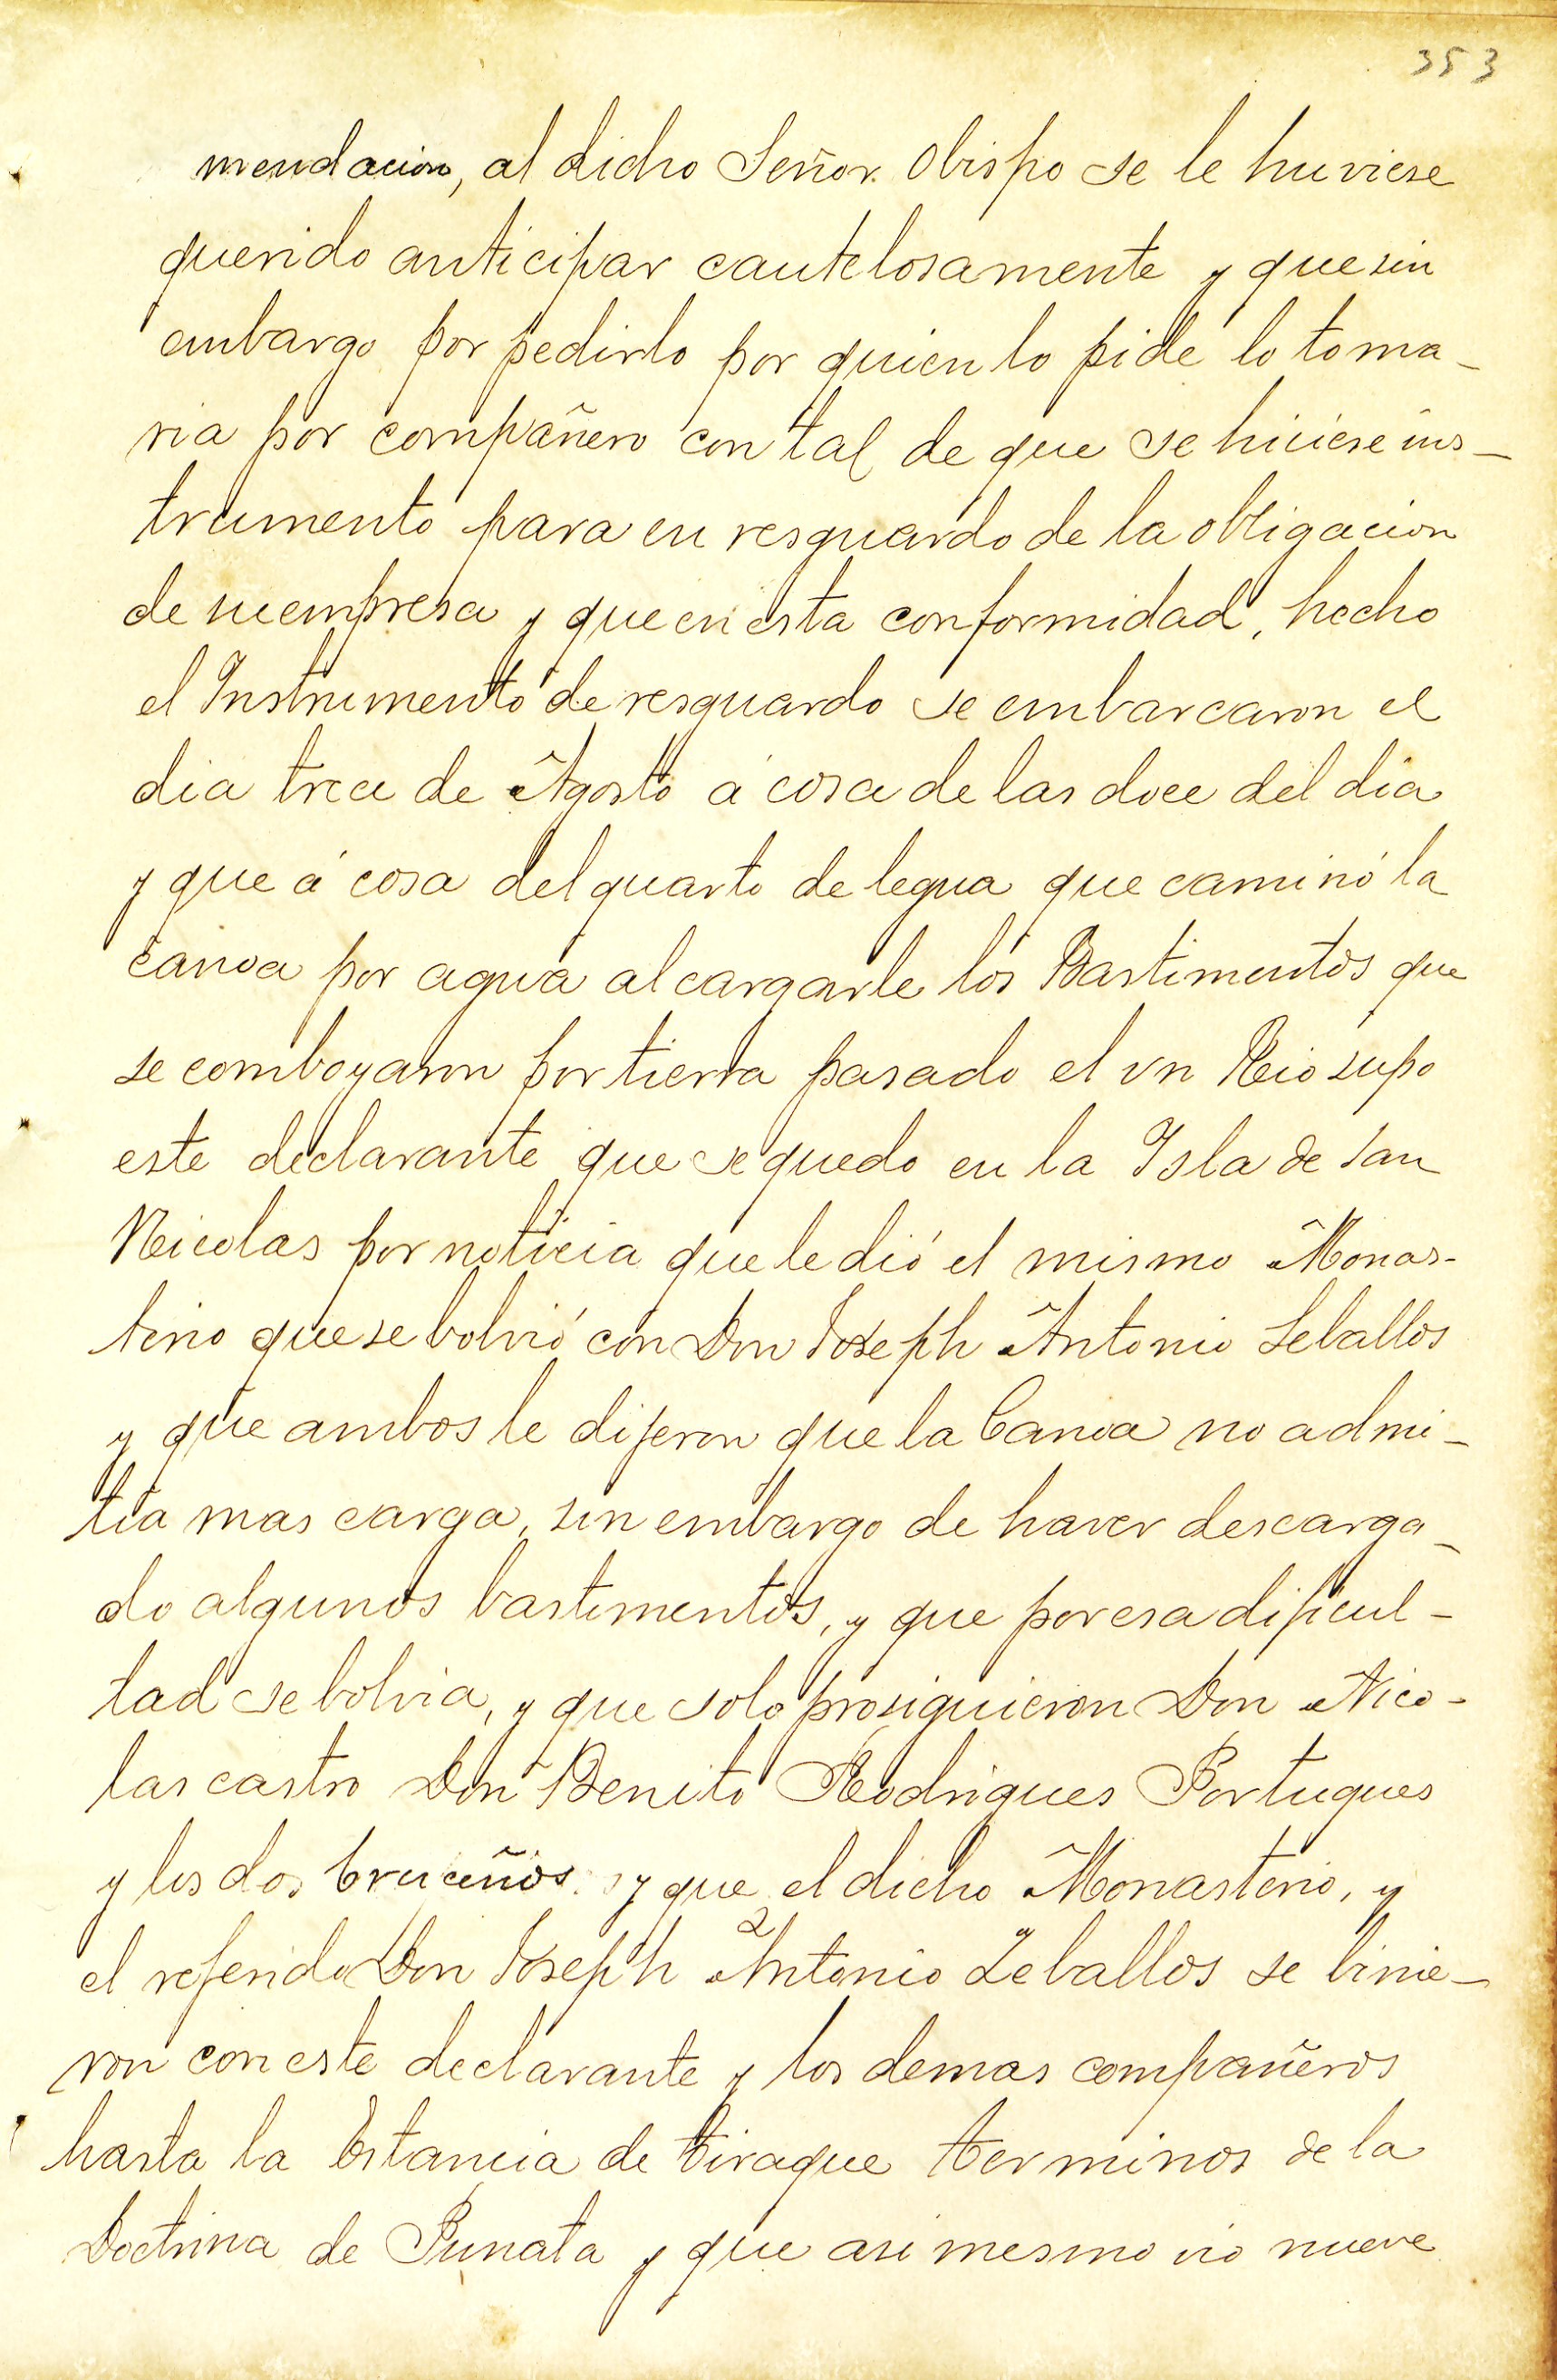 353
mendacion, al dicho Señor Obispo se le huviese
querido anticipar cautelosamente y que sin
embargo por pedirlo por quien lo pide lo toma-
ria por compañero con tal de que se hiciese ins-
trumento para en resguardo de la obligacion
de su empresa y que en esta conformidad, hecho
el Instrumento de resguardo se embarcaron el
dia trece de Agosto á cosa de las doce del dia
y que á cosa del quarto de legua que caminó la
canoa por agua al cargarle los Bastimentos que
se comboyaron por tierra pasado el un Rio supo
este declarante que se quedo en la Isla de San
Nicolas por noticia que le dió el mismo Monas-
terio que se bolvió con Don Joseph Antonio Seballos
y que ambos le dijeron que la Canoa no admi-
tia mas carga, sin embargo de haver descarga-
do algunos bastimentos, y que por esa dificul-
tad se bolvia, y que solo prosiguieron Don Nico-
las castro Don Benito Rodrigues Portugues
y los dos Cruceños y que el dicho Monasterio, y
el referido Don Joseph Antonio Zeballos se binie-
ron con este declarante y los demas compañeros
hasta la Estancia de Tiraque terminos de la
Doctrina de Punata y que asi mesmo vio nueve